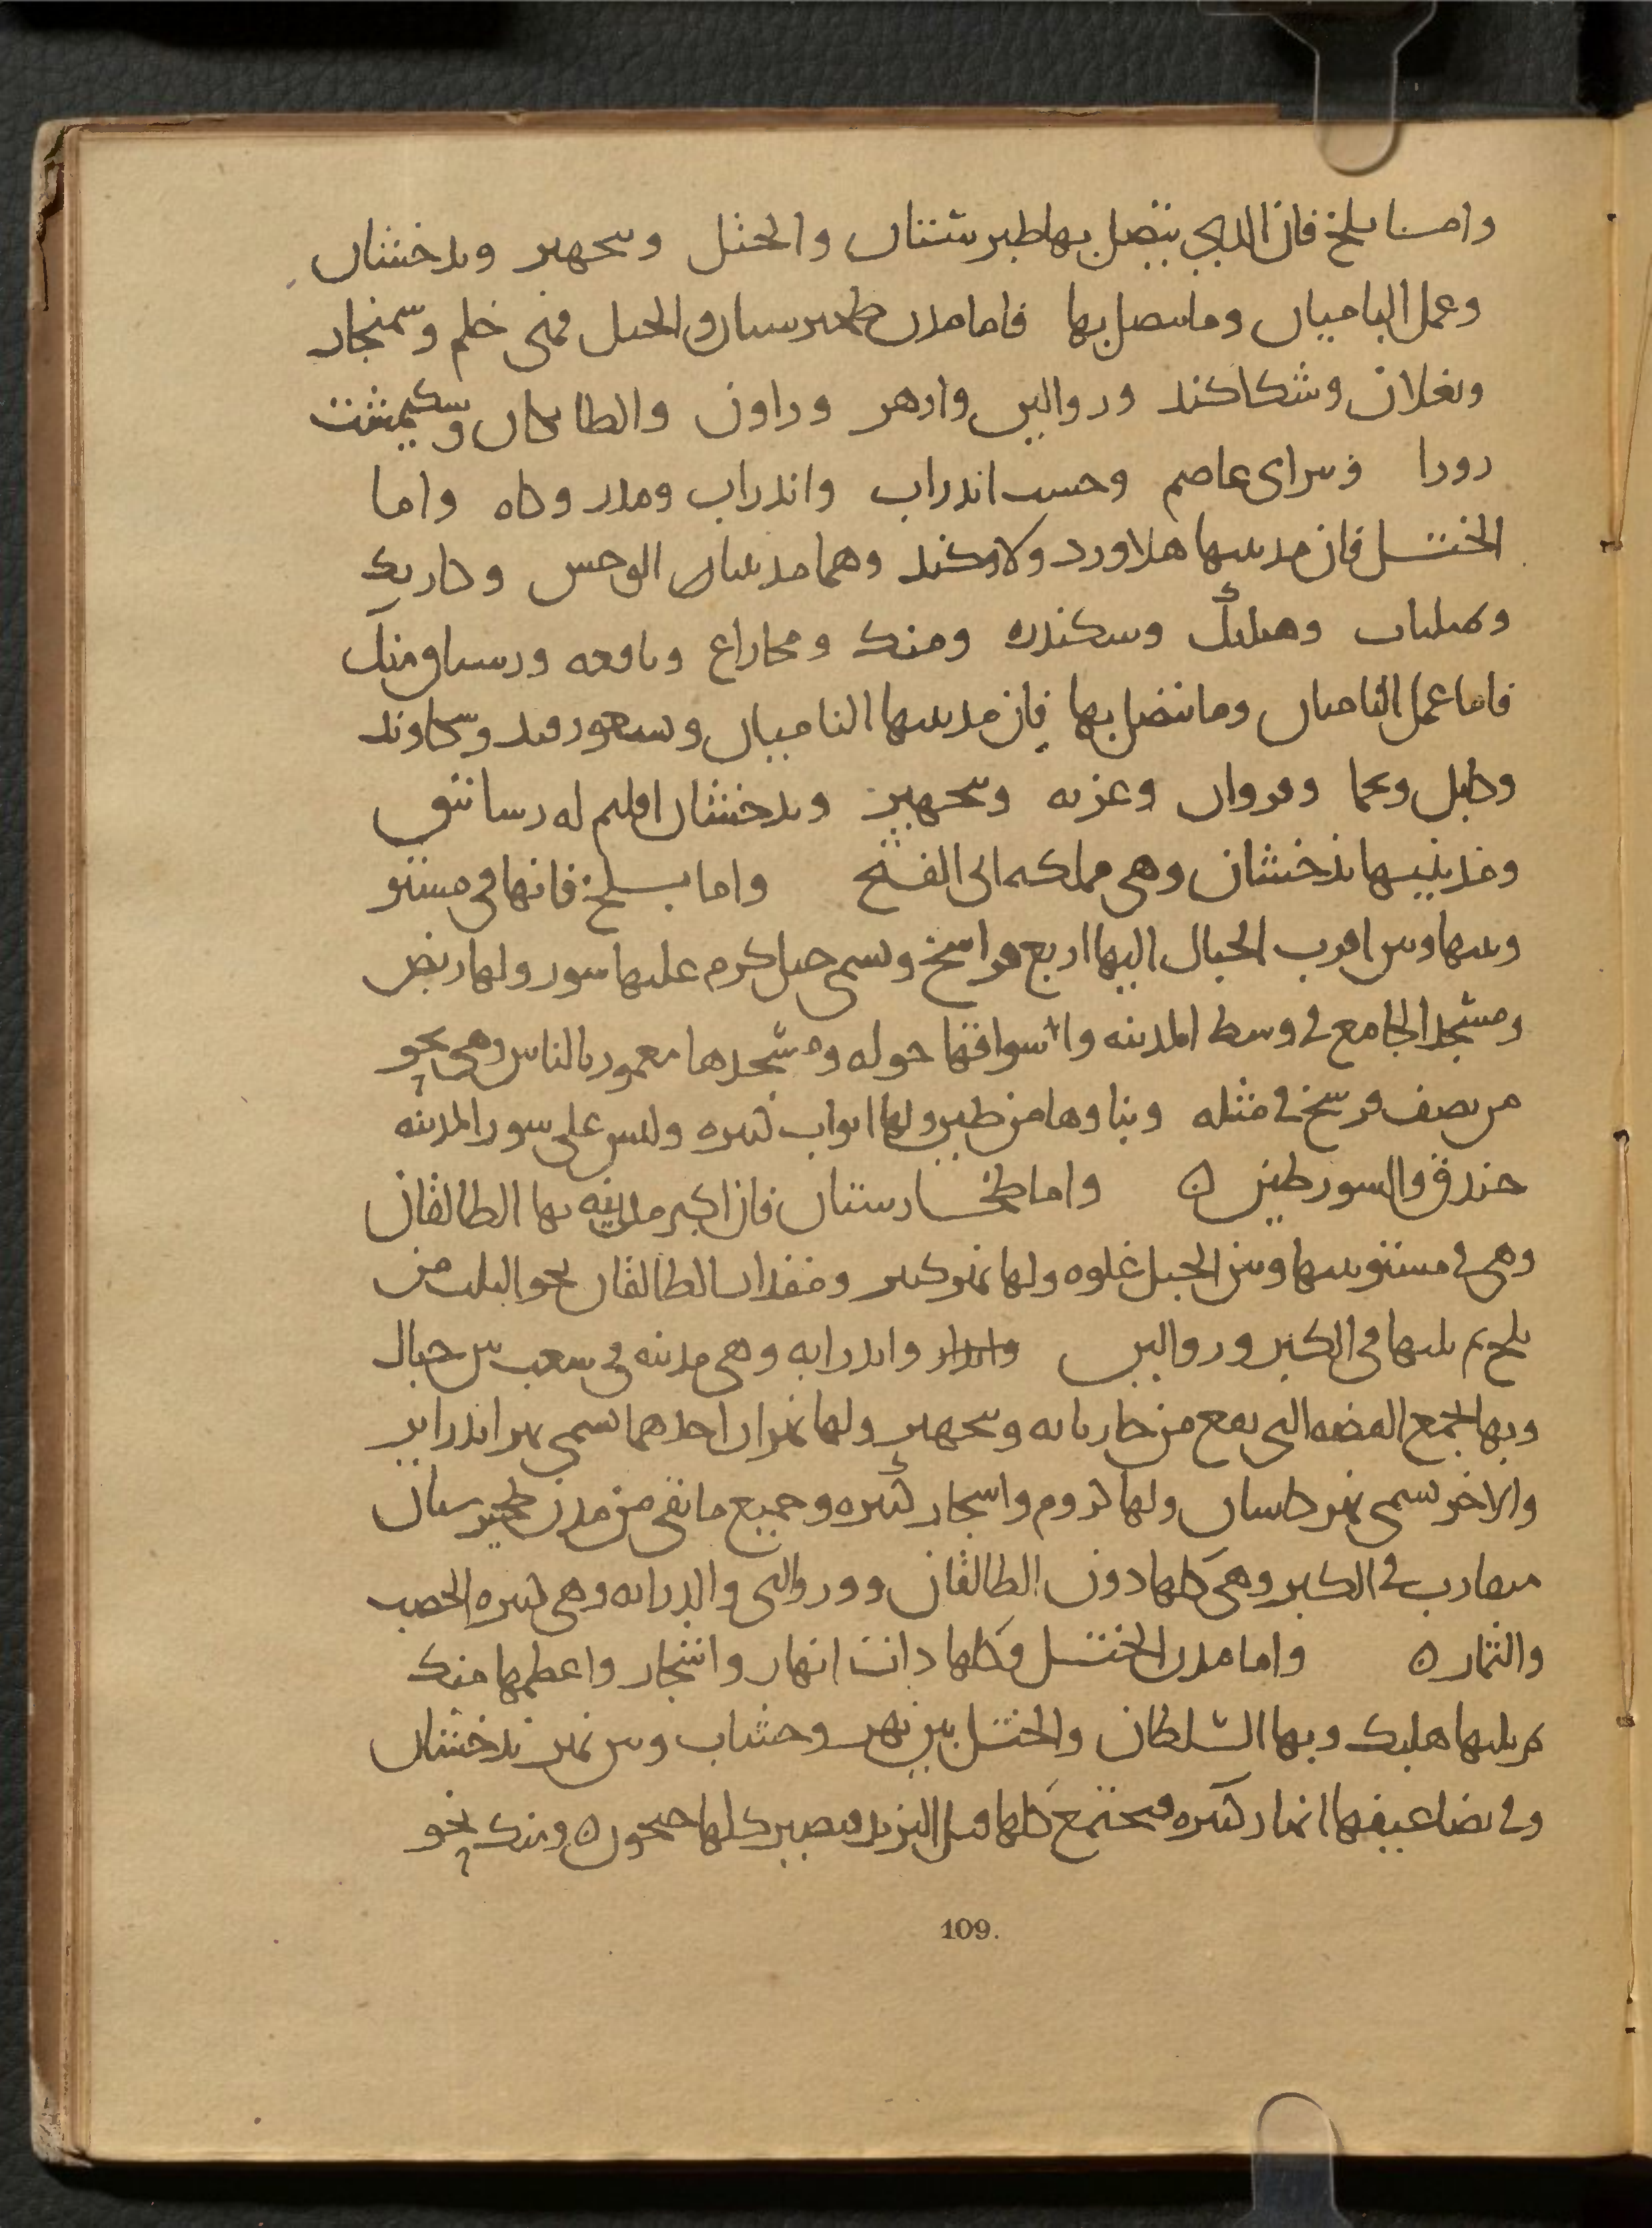 وامـا بلخ فان الدى يتصل بها طبرستان والختل وبنجهير وبدخشان
وعمل الباميان وما يتصل بها فاما مدن طخيرستان والختل فهى خلم وسمنجان
وبغلان وشكاكند وروالين وارهر وراون والطايكان وسكيمشت
روزا وسراى عاصم وحسب اندراب واندراب ومدر وكاه واما
الختـل فان مدينتها هلاورد ولاوكند وهما مدينتا الوحش وكاربك
وتمليات وهلبك وسكندره ومنك وبافعه ورستاق منك
فاما عمل الباميان وما يتصل بها فان مدينتها الباميان وبسعورقند وسكاوند
وكابل ولحا وفروان وغزنه وبنجهير وبدخشان اقليم له رساتيق
ومدينتها بذخشان وهى مملكه ابى الفتح واما بـلخ فانها فى مستو
وبينها وبين اقرب الجبال اليها اربع فراسخ ويسمى جبل كرم عليها سور ولها ربض
ومسجد الجامع فى وسط المدينه واسواقها حوله ومسجدها معمور بالناس وهى نحو
من نصف فرسخ فى مثله وبناوها من طين ولها ابواب كثيره وليس على سور المدينه
خندق والسور طين ه واما طخـارستان فان اكبر مدينه بها الطالقان
وهى فى مستو بينها وبين الجبل غلوه ولها نهر كبير ومقدار الطالقان نحو الثلث من
بلخ ثم يليها فى الكبر وروالين واندرابه وهى مدينه فى شعب بين جبال
وبها تجمع الفضه التى تقع من جاربايه وبنجهير ولها نهران احدهما يسمى نهر اندراب
والاخر يسمى نهر كاسان ولها كروم واشجار كثيره وجميع ما بقى من مدن طخيرستان
متقارب فى الكبر وهى كلها دون الطالقان وورواليى واندرابه وهى كثيره الخصب
والثمار ه واما مدن الختـل وكلها ذات انهار واشجار واعظمها منك
ثم يليها هلبك وبها السلطان والختـل بين نهر وخشاب وبين نهر بذخشان
وفى تضاعيفها انهار كثيره ويجتمع كلها قبل الترمذ ويصير كلها جيحون ه ومنك نحو
109.